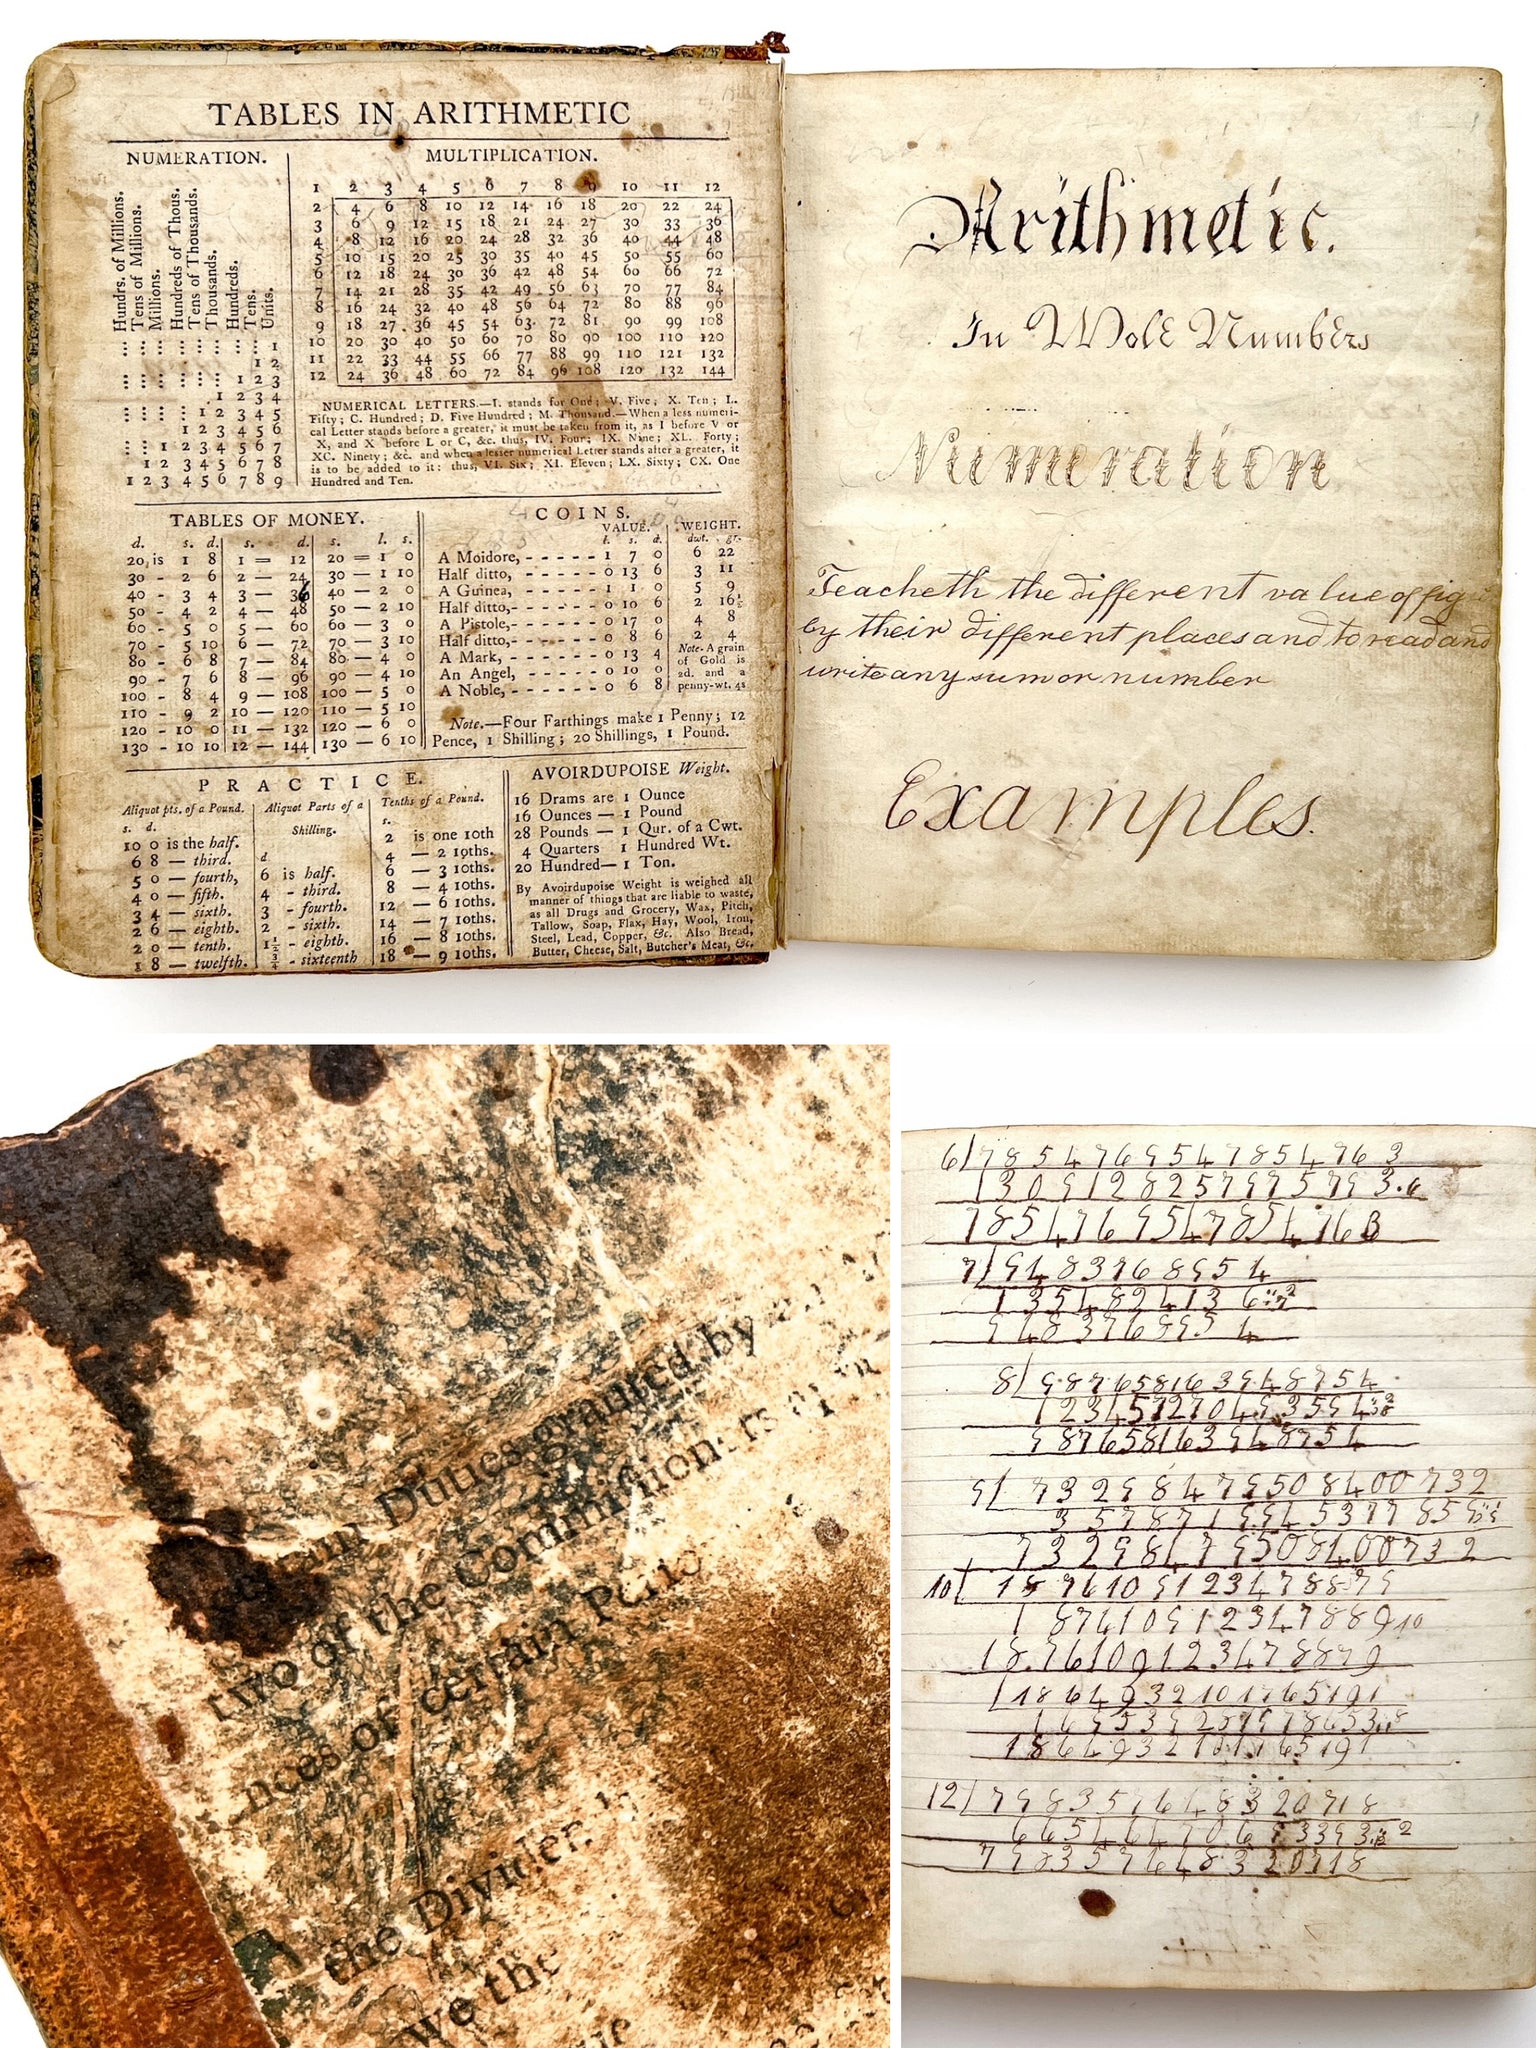 TABLES IN ARITHMETIC
NUMERATION.
Hundrs. of Millions.
Tens of Millions.
Millions.
Hundreds of Thous.
Tens of Thousands.
Thousands.
Hundreds.
Tens.
Units.
... ... ... ... ... ... ... ... 1
... ... ... ... ... ... ... 1 2
... ... ... ... ... ... 1 2 3
... ... ... ... ... 1 2 3 4
... ... ... ... 1 2 3 4 5
... ... ... 1 2 3 4 5 6
... ... 1 2 3 4 5 6 7
... 1 2 3 4 5 6 7 8
1 2 3 4 5 6 7 8 9
MULTIPLICATION.
1 2 3 4 5 6 7 8 9 10 11 12
2 4 6 8 10 12 14 16 18 20 22 24
3 6 9 12 15 18 21 24 27 30 33 36
4 8 12 16 20 24 28 32 36 40 44 48
5 10 15 20 25 30 35 40 45 50 55 60
6 12 18 24 30 36 42 48 54 60 66 72
7 14 21 28 35 42 49 56 63 70 77 84
8 16 24 32 40 48 56 64 72 80 88 96
9 18 27 36 45 54 63 72 81 90 99 108
10 20 30 40 50 60 70 80 90 100 110 120
11 22 33 44 55 66 77 88 99 110 121 132
12 24 36 48 60 72 84 96 108 120 132 144
NUMERICAL LETTERS.—I. stands for One; V. Five; X. Ten; L.
Fifty; C. Hundred; D. Five Hundred; M. Thousand.—When a less numeri-
cal Letter stands before a greater, it must be taken from it, as I before V or
X, and X before L or C, &c. thus, IV. Four; IX. Nine; XL. Forty;
XC. Ninety; &c. and when a lesser numerical Letter stands after a greater, it
is to be added to it: thus, VI. Six; XI. Eleven; LX. Sixty; CX. One
Hundred and Ten.
TABLES OF MONEY.
d. s. d. s. d. s. l. s.
20 is 1 8 1 = 12 20 = 1 0
30 - 2 6 2 — 24 30 — 1 10
40 - 3 4 3 — 36 40 — 2 0
50 - 4 2 4 — 48 50 — 2 10
60 - 5 0 5 — 60 60 — 3 0
70 - 5 10 6 — 72 70 — 3 10
80 - 6 8 7 — 84 80 — 4 0
90 - 7 6 8 — 96 90 — 4 10
100 - 8 4 9 — 108 100 — 5 0
110 - 9 2 10 — 120 110 — 5 10
120 - 10 0 11 — 132 120 — 6 0
130 - 10 10 12 — 144 130 — 6 10
COINS.
VALUE. WEIGHT.
l. s. d. dwt. gr.
A Moidore, - - - - - 1 7 0 6 22
Half ditto, - - - - - 0 13 6 3 11
A Guinea, - - - - - 1 1 0 5 9
Half ditto, - - - - - 0 10 6 2 16½
A Pistole, - - - - - 0 17 0 4 8
Half ditto, - - - - - 0 8 6 2 4
A Mark, - - - - - 0 13 4
An Angel, - - - - - 0 10 0
A Noble, - - - - - 0 6 8
Note. A grain
of Gold is
2d. and a
penny-wt. 4s
Note.—Four Farthings make 1 Penny; 12
Pence, 1 Shilling; 20 Shillings, 1 Pound.
PRACTICE.
Aliquot pts. of a Pound.
s. d.
10 0 is the half.
6 8 — third.
5 0 — fourth,
4 0 — fifth.
3 4 — sixth.
2 6 — eighth.
2 0 — tenth.
1 8 — twelfth.
Aliquot Parts of a
Shilling.
d
6 is half.
4 - third.
3 - fourth.
2 - sixth.
1½ - eighth.
¾ - sixteenth
Tenths of a Pound.
s.
2 is one 10th
4 — 2 10ths.
6 — 3 10ths.
8 — 4 10ths.
12 — 6 10ths.
14 — 7 10ths.
16 — 8 10ths.
18 — 9 10ths.
AVOIRDUPOISE Weight.
16 Drams are 1 Ounce
16 Ounces — 1 Pound
28 Pounds — 1 Qur. of a Cwt.
4 Quarters 1 Hundred Wt.
20 Hundred — 1 Ton.
By Avoirdupoise Weight is weighed all
manner of things that are liable to waste,
as all Drugs and Grocery, Wax, Pitch,
Tallow, Soap, Flax, Hay, Wool, Iron,
Steel, Lead, Copper, &c. Also Bread,
Butter, Cheese, Salt, Butcher's Meat, &c.
Arithmetic.
In Wole Numbers
Numiration
Teacheth the different value of fig
by their different places and to read and
write any sum or number
Examples.
and Duties granted by
two of the Commissioners
nces of certain
the Divider
we the
6 785476954785476 3
130912825797579 3.6
785476954785476 3
7 948376895 4
135482413 6
8 987658163948754
987658163948754
9 73298479508400732
73298479508400732
10 1876109123478879
187610912347889 10
1876109123478879
186493210176519 1
12 798357648320718
798357648320718